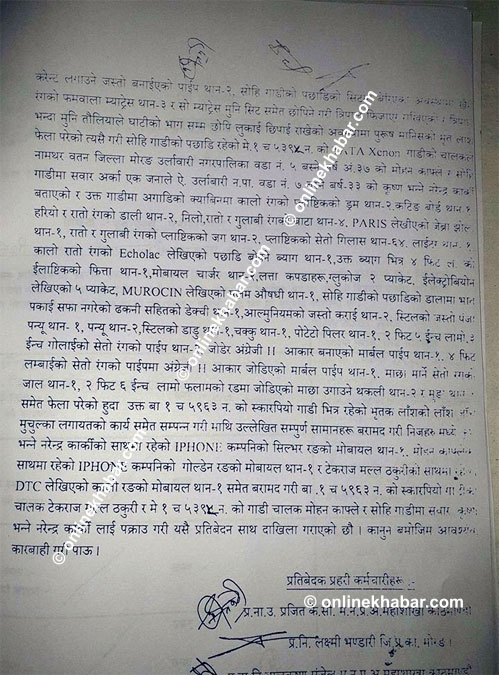 करेन्ट लगाउने जस्तो बनाईएको पाईप थान-२, सोहि गाडीको पछाडिको सिट
रंगको फमवाला म्याट्रेस थान-३ र सो म्याट्रेस मुनि सिट समेत छोपिने गरी
भन्दा मुनि तौलियाले घाटीको भाग सम्म छोपि लुकाई छिपाई राखेको अवस्थामा पुरूष मानिसको मृत लाश
फेला परेको त्यसै गरी सोहि गाडीको पछाडि रहेको मे १ च ५३९४ न. को TATA Xenon गाडीको चालकले
नामथर वतन जिल्ला मोरङ उर्लाबारी नगरपालिका वडा नं. ५ बस्ने बर्ष अं.३७ को मोहन काफ्ले र सोहि
गाडीमा सवार अर्का एक जनाले ऐ. उर्लाबारी न.पा. वडा नं. ७ बस्ने बर्ष-३३ को कृष्ण भन्ने नरेन्द्र कार्की
बताएको र उक्त गाडीमा अगाडिको क्याबिनमा कालो रंगको प्लाष्टिकको ड्रम थान-२,कटिङ बोर्ड थान-१
हरियो र रातो रंगको डाली थान-२, निलो,रातो र गुलाबी रंगको बाटा थान-४, PARIS लेखीएको जेब्रा झोला
थान-१, रातो र गुलाबी रंगको प्लाष्टिकको जग थान-२, प्लाष्टिकको सेतो गिलास थान-६४, लाईटर थान-१
कालो रातो रंगको Echolac लेखिएको पछाडि बोक्ने ब्याग थान-१,उक्त ब्याग भित्र ४ फिट
ईलाष्टिकको फित्ता थान-१,मोबायल चार्जर थान-१,लत्ता कपडाहरू,ग्लुकोज २ प्याकेट, ईलेक्ट्रोबियोन
लेखिएको ५ प्याकेट, MUROCIN लेखिएको मलम औषधी थान-१, सोहि गाडीको पछाडिको डालामा भात
पकाई सफा नगरेको ढकनी सहितको डेक्ची थान-१,आल्मुनियमको जस्तो कराई थान-२, स्टिलको जस्तो
पन्यू थान- १, पन्यू थान-२,स्टिलको डाडु थान-१,चक्कु थान-१, पोटेटो पिलर थान-१, २ फिट ५ ईन्च लामो,३
ईन्च गोलाईको सेतो रंगको पाईप थान-२ जोडेर अंग्रेजी H आकार बनाएको मार्बल पाईप थान-१, ४ फिट
लम्बाईको सेतो रंगको पाईपमा अंग्रेजी H आकार जोडिएको मार्बल पाईप थान-१, माछा मार्ने सेतो रंगको
जाल थान-१, २ फिट ६ ईन्च लामो फलामको रडमा जोडिएको माछा उगाउने थकली थान-२ र
समेत फेला परेको हुदा उक्त बा १ च ५९६३ न. को स्कारपियो गाडी भित्र रहेको मृतक लाँशको लाँश
मुचुल्का लगायतको कार्य समेत सम्पन्न गरी माथि उल्लेखित सम्पुर्ण सामानहरू बरामद गरी निजहरू मध्ये
भन्ने नरेन्द्र कार्कीको साथमा रहेको IPHONE कम्पनिको सिल्भर रंङको मोबायल थान-१, मोहन काफ्लेको
साथमा रहेको IPHONE कम्पनिको गोल्डेन रंङको मोबायल थान-१ र टेकराज मल्ल ठकुरीको साथमा
DTC लेखिएको कालो रंङको मोबायल थान-१ समेत बरामद गरी बा .१ च ५९६३ न. को स्कारपियो गाडीका
चालक टेकराज मल्ल ठकुरी र मे १ च ५३९४ न. को गाडी चालक मोहन काफ्ले र सोहि गाडीमा सवार कृष्ण
भन्ने नरेन्द्र कार्की लाई पक्राउ गरी यसै प्रतिबेदन साथ दाखिला गराएको छौ । कानुन बमोजिम आवश्यक
कारबाही गरी पाऊ ।
प्रतिबेदक प्रहरी कर्मचारीहरू :-
प्र.ना.उ. प्रजित के.सी. म.न.प्र.अ.महाशाखा काठमाण्डौ
प्र.नि. लक्ष्मी भण्डारी जि.प्र.का. मोरङ ।
© onlinekhabar.com
© onlinekhabar.com
© onlinekhabar.com
© onlinekhabar.com